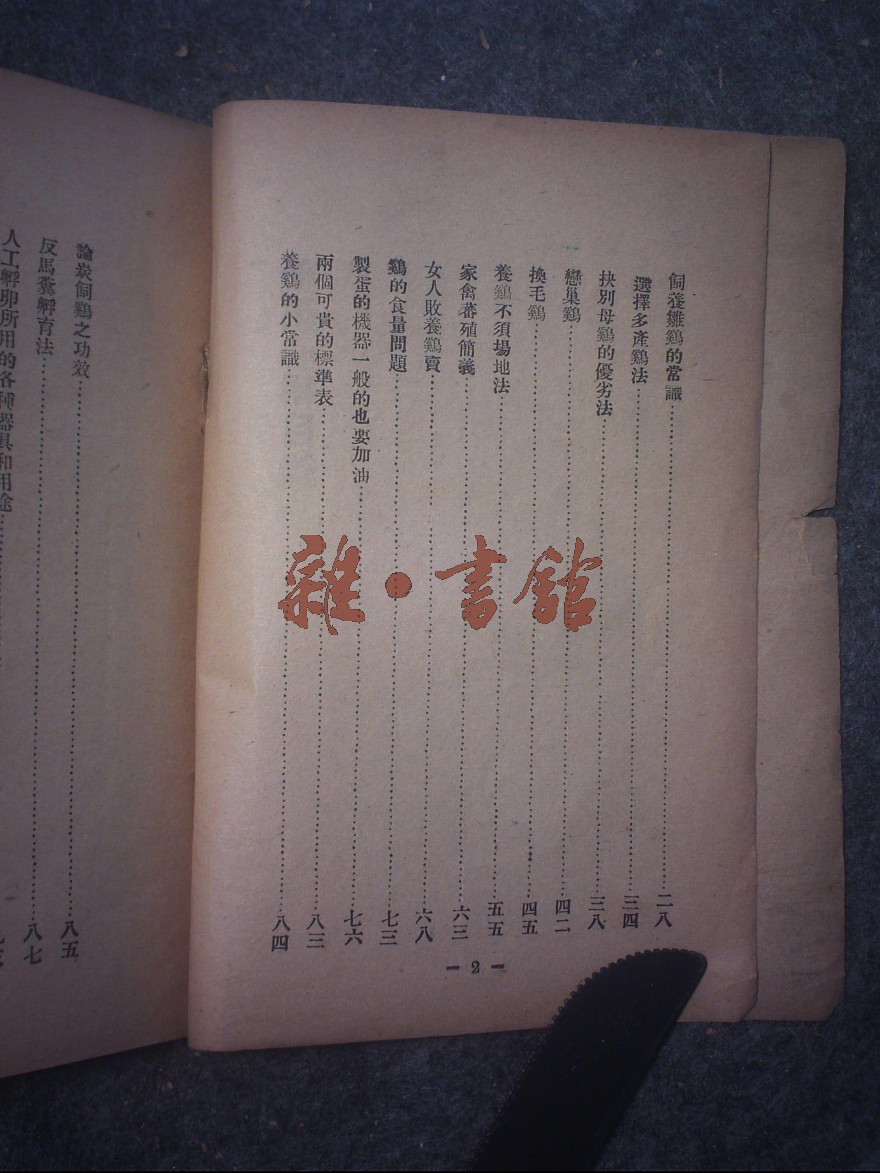 飼養雛鷄的常識……二八
選擇多產鷄法……三四
抉別母鷄的優劣法……三八
戀巢鷄……四二
換毛鷄……四五
養鷄不須場地法……五五
家禽蕃殖簡義……六三
女人敗養鷄賣……六八
鷄的食量問題……七三
製蛋的機器一般的也要加油……七六
兩個可貴的標準表……八三
養鷄的小常識……八四
— 2 —
論炭飼鷄之功效……八五
反馬糞孵育法……八七
人工孵卵所用的各種器具和用途……
雜·書館